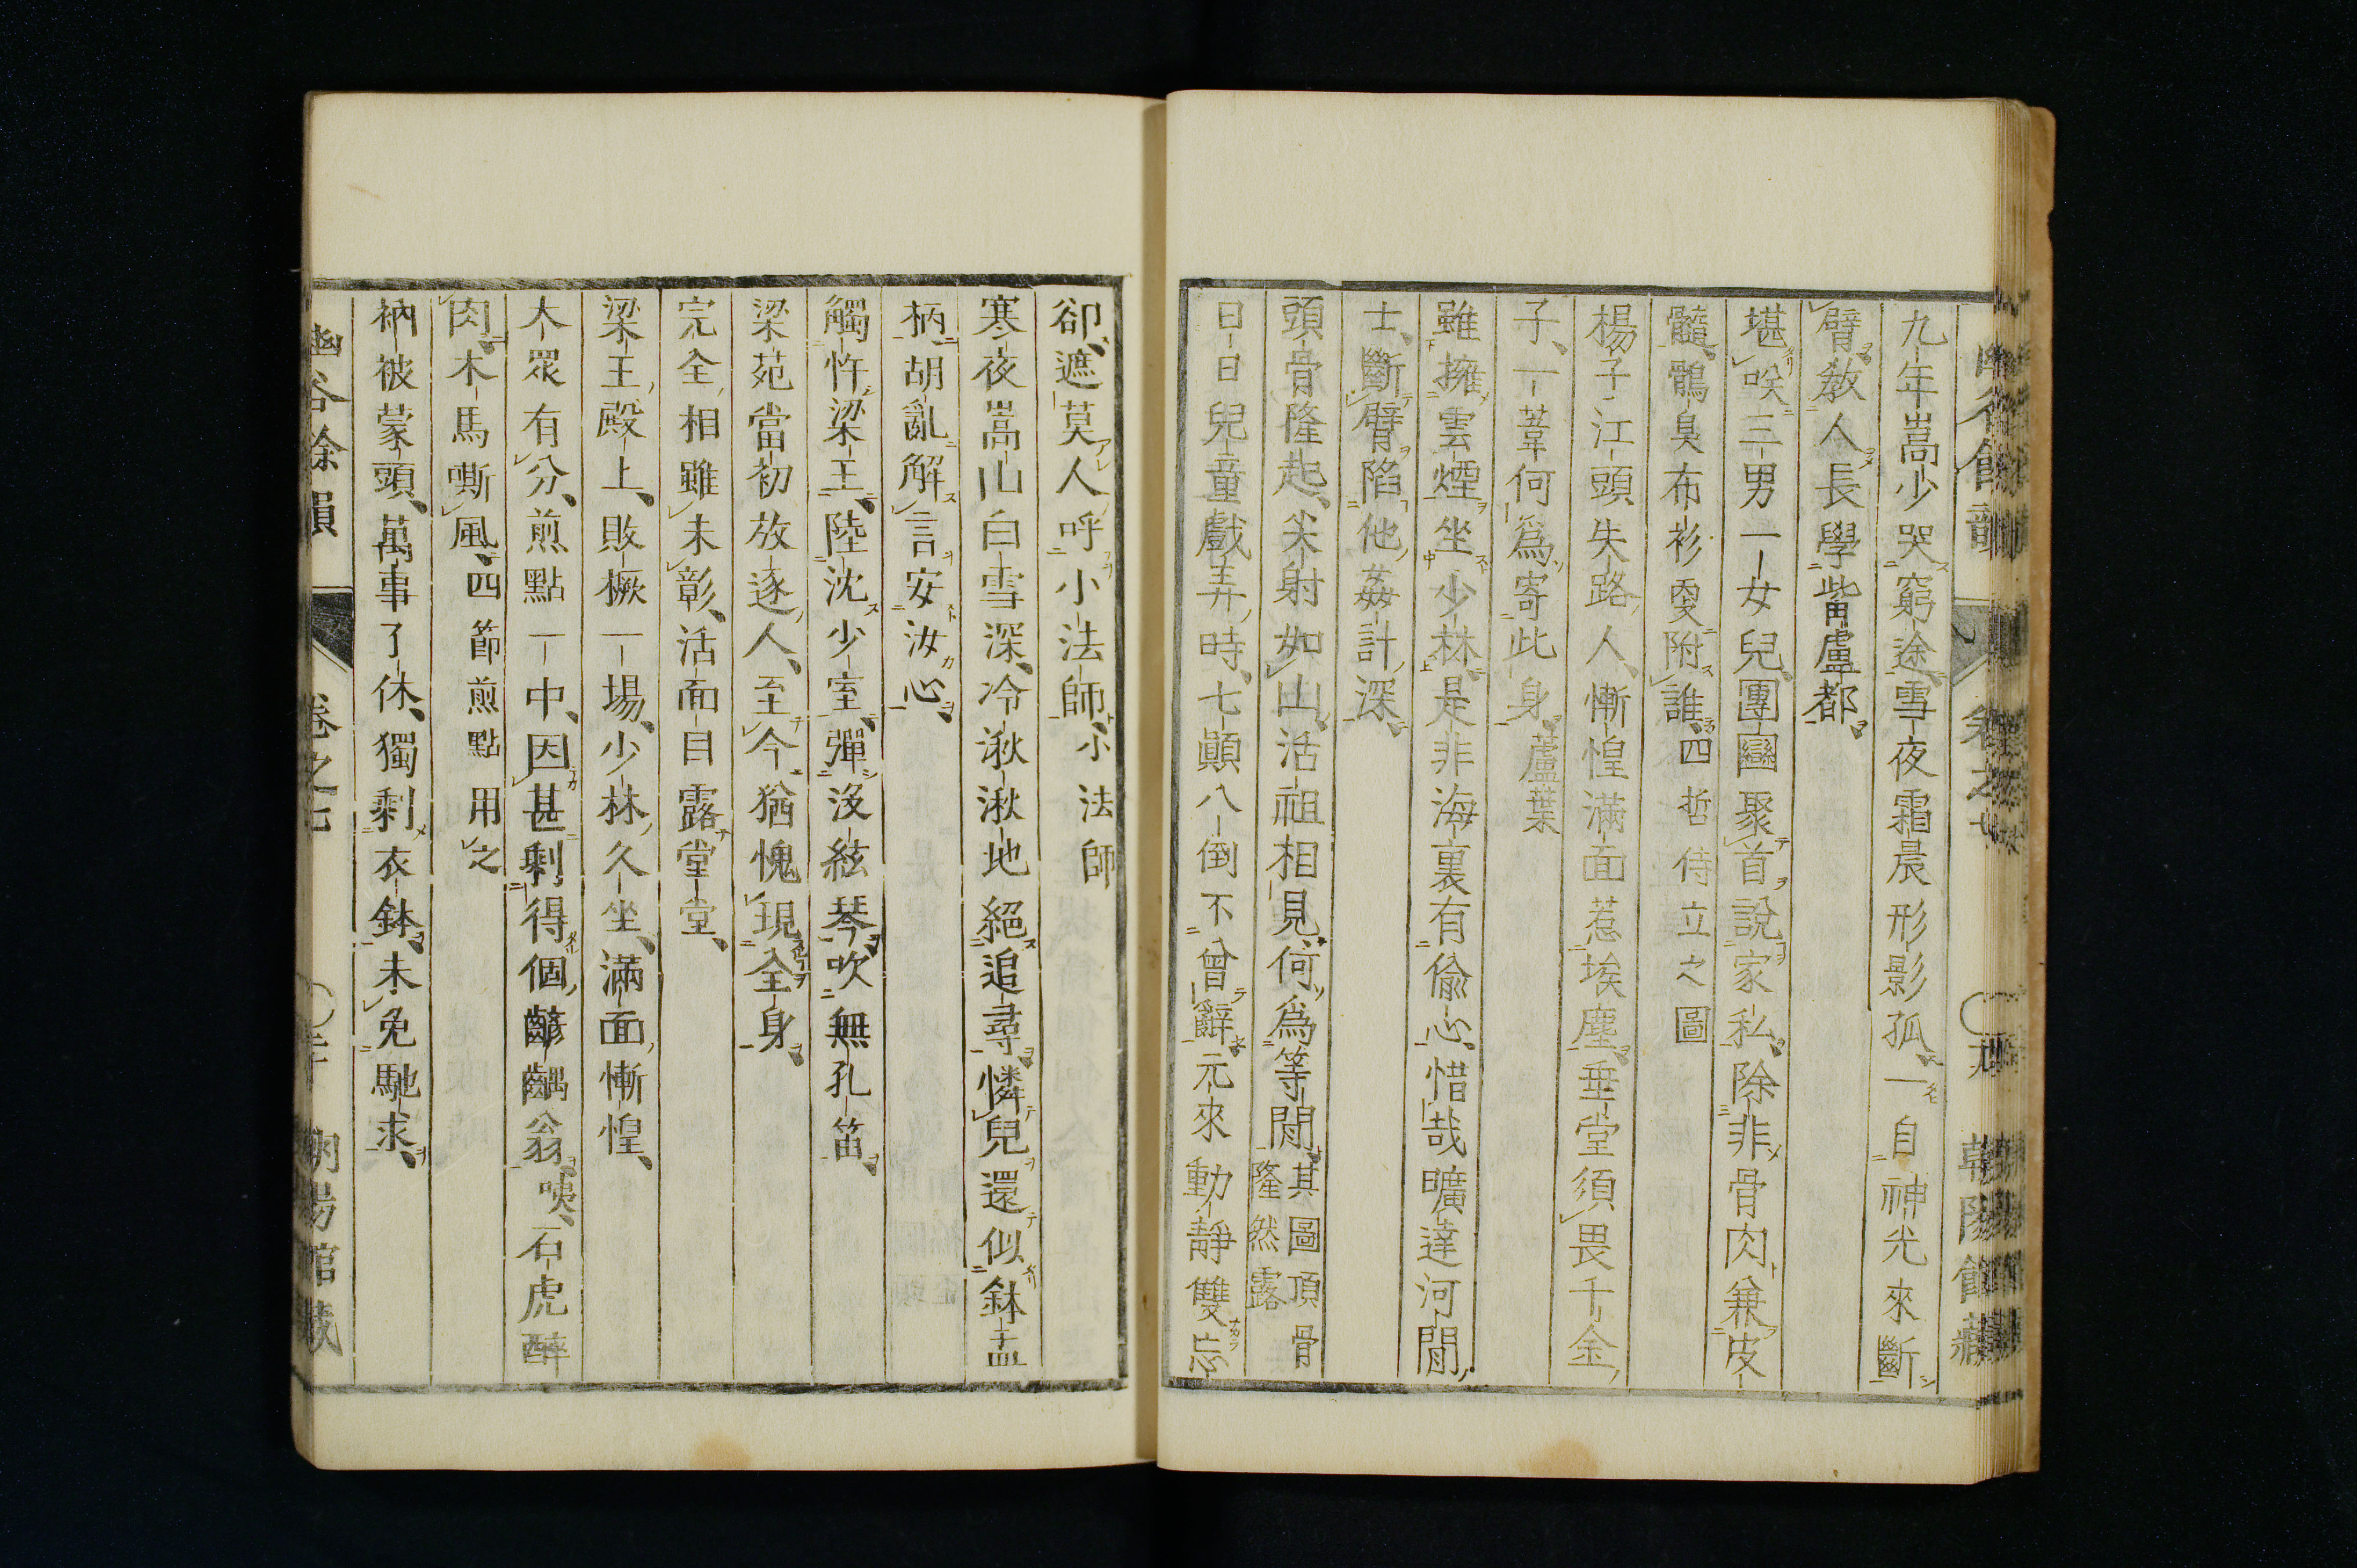 九年嵩少哭窮途雪夜霜晨形影孤一自神光來斷
臂教人長學觜盧都
堪咲三男一女兒團圞聚首說家私除非骨肉兼皮
髓鶻臭布衫要附誰四哲侍立之圖
楊子江頭失路人慚惶滿面惹埃塵垂堂須畏千金
子一葦何爲寄此身蘆葉
雖擁雲煙坐少林是非海裏有偸心惜哉曠達河間
士斷臂陷他姦計深
頭骨隆起尖射如山活祖相見何爲等閒其圖頂骨
隆然露
日日兒童戲弄時七顚八倒不曾辭元來動靜雙忘
卻遮莫人呼小法師小法師
寒夜嵩山白雪深冷湫湫地絕追尋憐兒還似鉢盂
柄胡亂解言安汝心
觸忤梁王陸沈少室彈沒絃琴吹無孔笛
梁苑當初放逐人至今猶愧現全身
完全相雖未彰活面目露堂堂
梁王殿上敗橛一場少林久坐滿面慚惶
大眾有分煎點一中因甚剩得個齾齵翁咦石虎醉
肉木馬嘶風四節煎點用之
衲被蒙頭萬事了休獨剩衣鉢未免馳求
幽谷餘韻 卷之七 〇二十 朝陽館藏